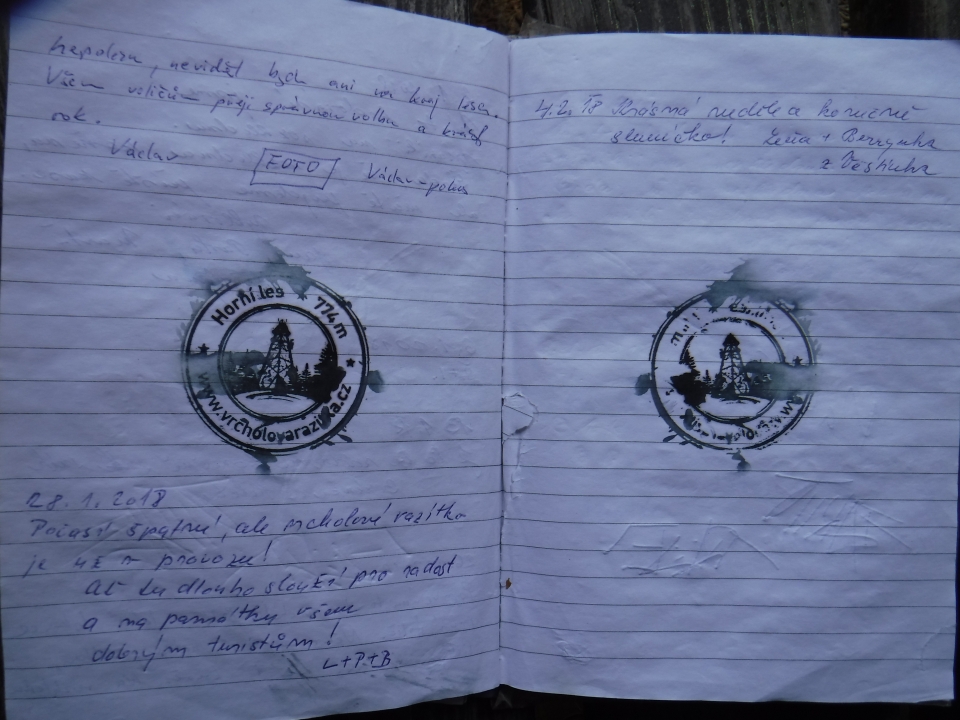 nevidět bych ani na kraj lesa.
Všem voličům přeji správnou volbu a krásný
rok.
Václav FOTO Václav-
Horní les 774 m
www.vrcholovarazitka.cz
28.1.2018
Počasí špatné, ale vrcholové razítko
je už v provozu!
Ať tu dlouho slouží pro radost
a na památku všem
dobrým turistům!
L+P+B
4.2.18 Krásná neděle a konečně
sluníčko! +
z